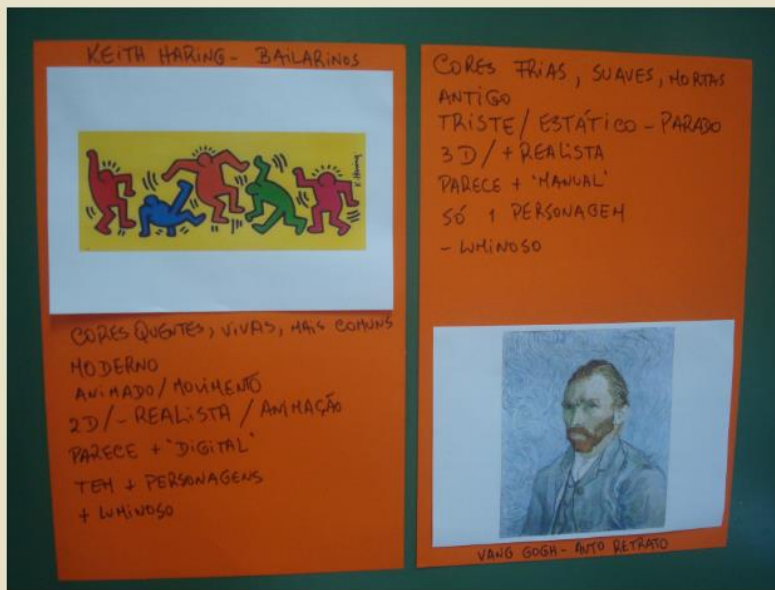 KEITH HARING - BAILARINOS
K. Haring
CORES QUENTES, VIVAS, MAIS COMUNS
MODERNO
ANIMADO/MOVIMENTO
2D/- REALISTA / ANIMAÇÃO
PARECE + 'DIGITAL'
TEM + PERSONAGENS
+ LUMINOSO
CORES FRIAS, SUAVES, MORTAS
ANTIGO
TRISTE/ ESTÁTICO - PARADO
3D/ + REALISTA
PARECE + 'MANUAL'
SÓ 1 PERSONAGEM
- LUMINOSO
VANG GOGH - AUTO RETRATO